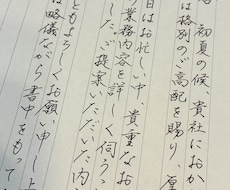 初夏の候、貴社におか
は格別のご高配を賜り、厚
日はお忙しい中、貴重なお
業務内容を詳しく伺うこ
した。ご提案いただいた内
ともよろしくお願い申し上
は略儀ながら書中をもって